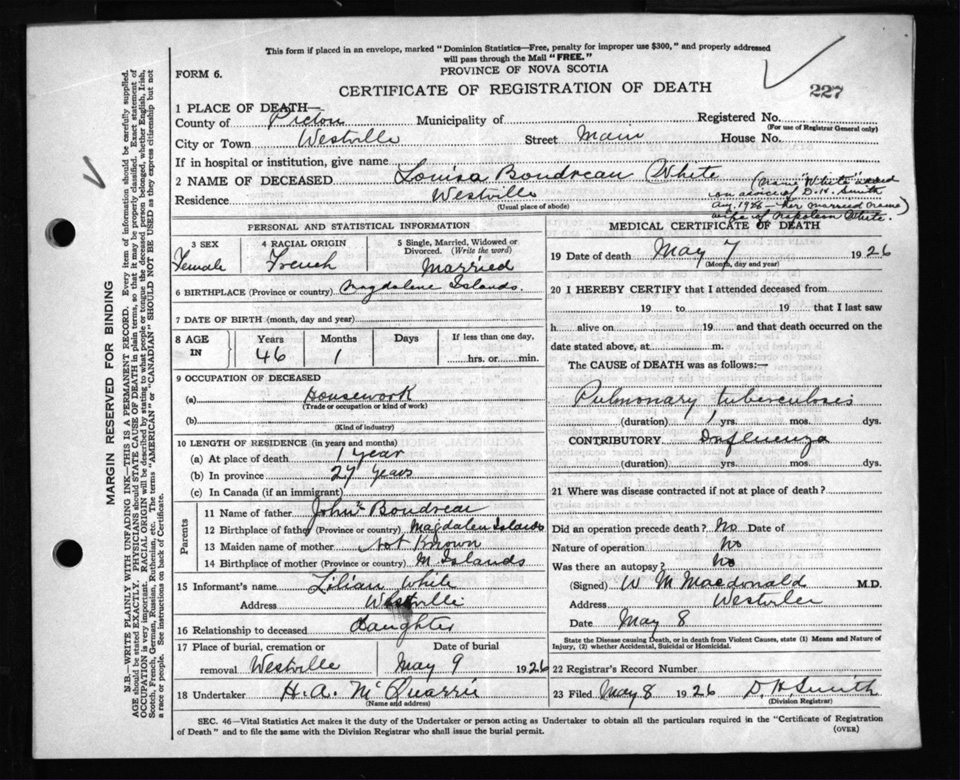 This form if placed in an envelope, marked "Dominion Statistics—Free, penalty for improper use $300," and properly addressed
will pass through the Mail "FREE."
PROVINCE OF NOVA SCOTIA
FORM 6.
CERTIFICATE OF REGISTRATION OF DEATH
227
1 PLACE OF DEATH—
County of Pictou Municipality of Registered No.
(For use of Registrar General only)
City or Town Westville Street Main House No.
If in hospital or institution, give name
2 NAME OF DECEASED Louisa Boudreau White
(Name "White" added
on advice of D. H. Smith
Aug. 1926 - her married name)
wife of Napoleon White.
Residence Westville
(Usual place of abode)
PERSONAL AND STATISTICAL INFORMATION
3 SEX Female
4 RACIAL ORIGIN French
5 Single, Married, Widowed or Divorced. (Write the word) Married
6 BIRTHPLACE (Province or country) Magdalene Islands.
7 DATE OF BIRTH (month, day and year)
8 AGE IN Years 46 Months 1 Days If less than one day, hrs. or min.
9 OCCUPATION OF DECEASED
(a) Housework
(Trade or occupation or kind of work)
(b)
(Kind of industry)
10 LENGTH OF RESIDENCE (in years and months)
(a) At place of death 1 year
(b) In province 27 years
(c) In Canada (if an immigrant)
Parents
11 Name of father John Boudreau
12 Birthplace of father (Province or country) Magdalen Islands
13 Maiden name of mother Not Known
14 Birthplace of mother (Province or country) M. Islands
15 Informant's name Lilian White
Address Westville
16 Relationship to deceased Daughter
17 Place of burial, cremation or removal Westville Date of burial May 9 1926
18 Undertaker H. A. McQuarrie
(Name and address)
MEDICAL CERTIFICATE OF DEATH
19 Date of death May 7 1926
(Month, day and year)
20 I HEREBY CERTIFY that I attended deceased from
19 to 19 that I last saw
h alive on 19 and that death occurred on the
date stated above, at m.
The CAUSE of DEATH was as follows:—
Pulmonary tuberculosis
(duration) 1 yrs. mos. dys.
CONTRIBUTORY Influenza
(duration) yrs. mos. dys.
21 Where was disease contracted if not at place of death?
Did an operation precede death? No Date of
Nature of operation No
Was there an autopsy? No
(Signed) W M Macdonald M.D.
Address Westville
Date May 8
State the Disease causing Death, or in death from Violent Causes, state (1) Means and Nature of
Injury, (2) whether Accidental, Suicidal or Homicidal.
22 Registrar's Record Number
23 Filed May 8 1926 D. H. Smith
(Division Registrar)
SEC. 46—Vital Statistics Act makes it the duty of the Undertaker or person acting as Undertaker to obtain all the particulars required in the "Certificate of Registration
of Death" and to file the same with the Division Registrar who shall issue the burial permit.
(OVER)
MARGIN RESERVED FOR BINDING
N.B.—WRITE PLAINLY WITH UNFADING INK—THIS IS A PERMANENT RECORD. Every item of information should be carefully supplied.
AGE should be stated EXACTLY. PHYSICIANS should STATE CAUSE OF DEATH in plain terms, so that it may be properly classified. Exact statement of
OCCUPATION is very important. RACIAL ORIGIN will be described by stating to what people or tongue the deceased person belonged, whether English, Irish,
Scotch, French, German, Russian, Ruthenian, etc. The terms "AMERICAN" or "CANADIAN" SHOULD NOT BE USED as they express citizenship but not
a race or people. See instructions on back of Certificate.